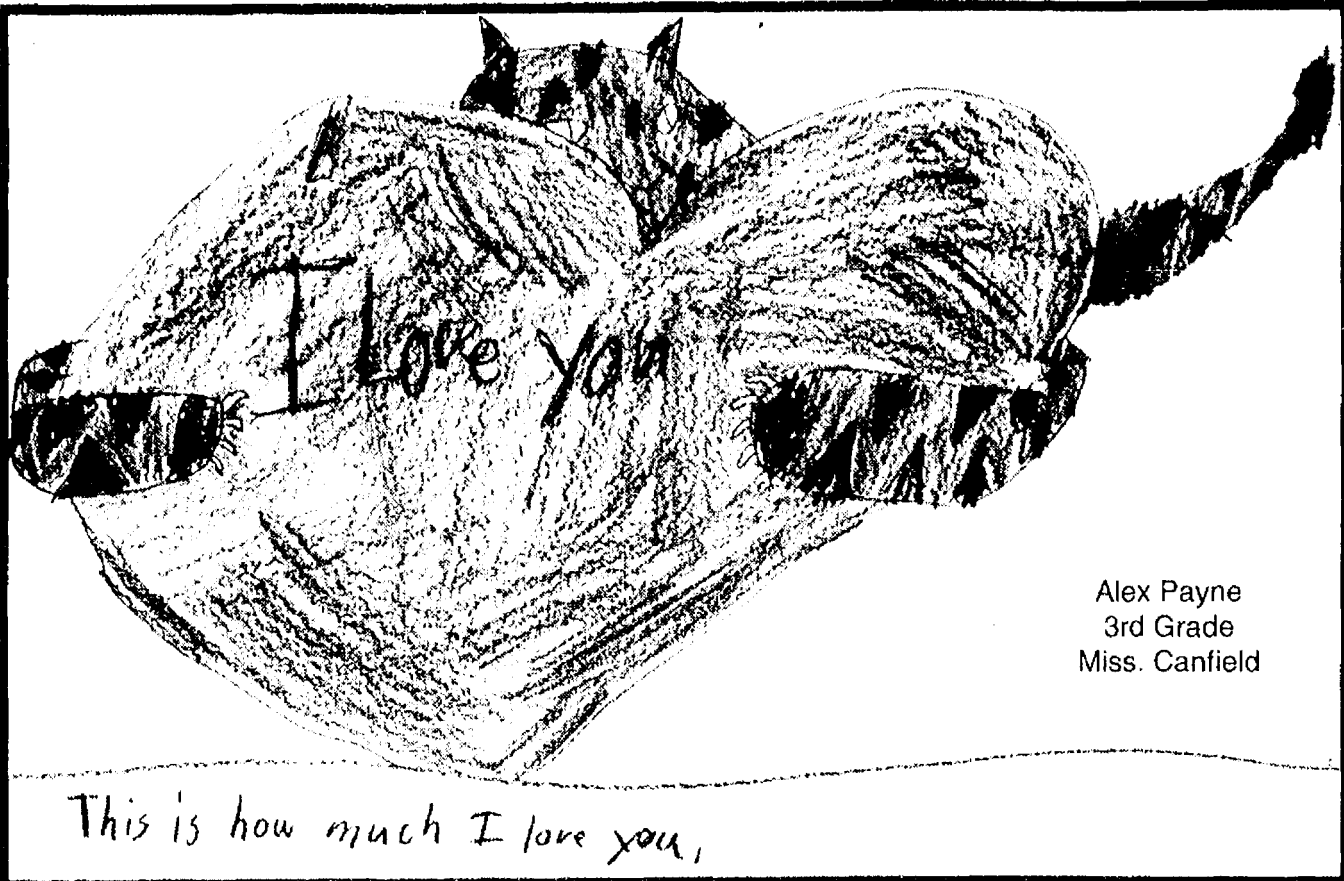 I Love you
Alex Payne
3rd Grade
Miss. Canfield
This is how much I love you,